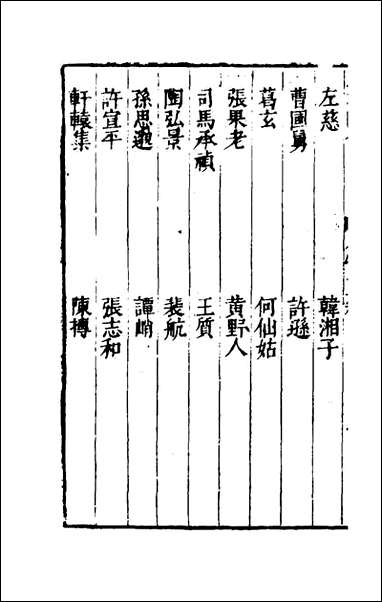 左慈 韓湘子
曹國舅 許遜
葛玄 何仙姑
張果老 黃野人
司馬承禎 王質
陶弘景 裴航
孫思邈 譚峭
許宣平 張志和
軒轅集 陳摶